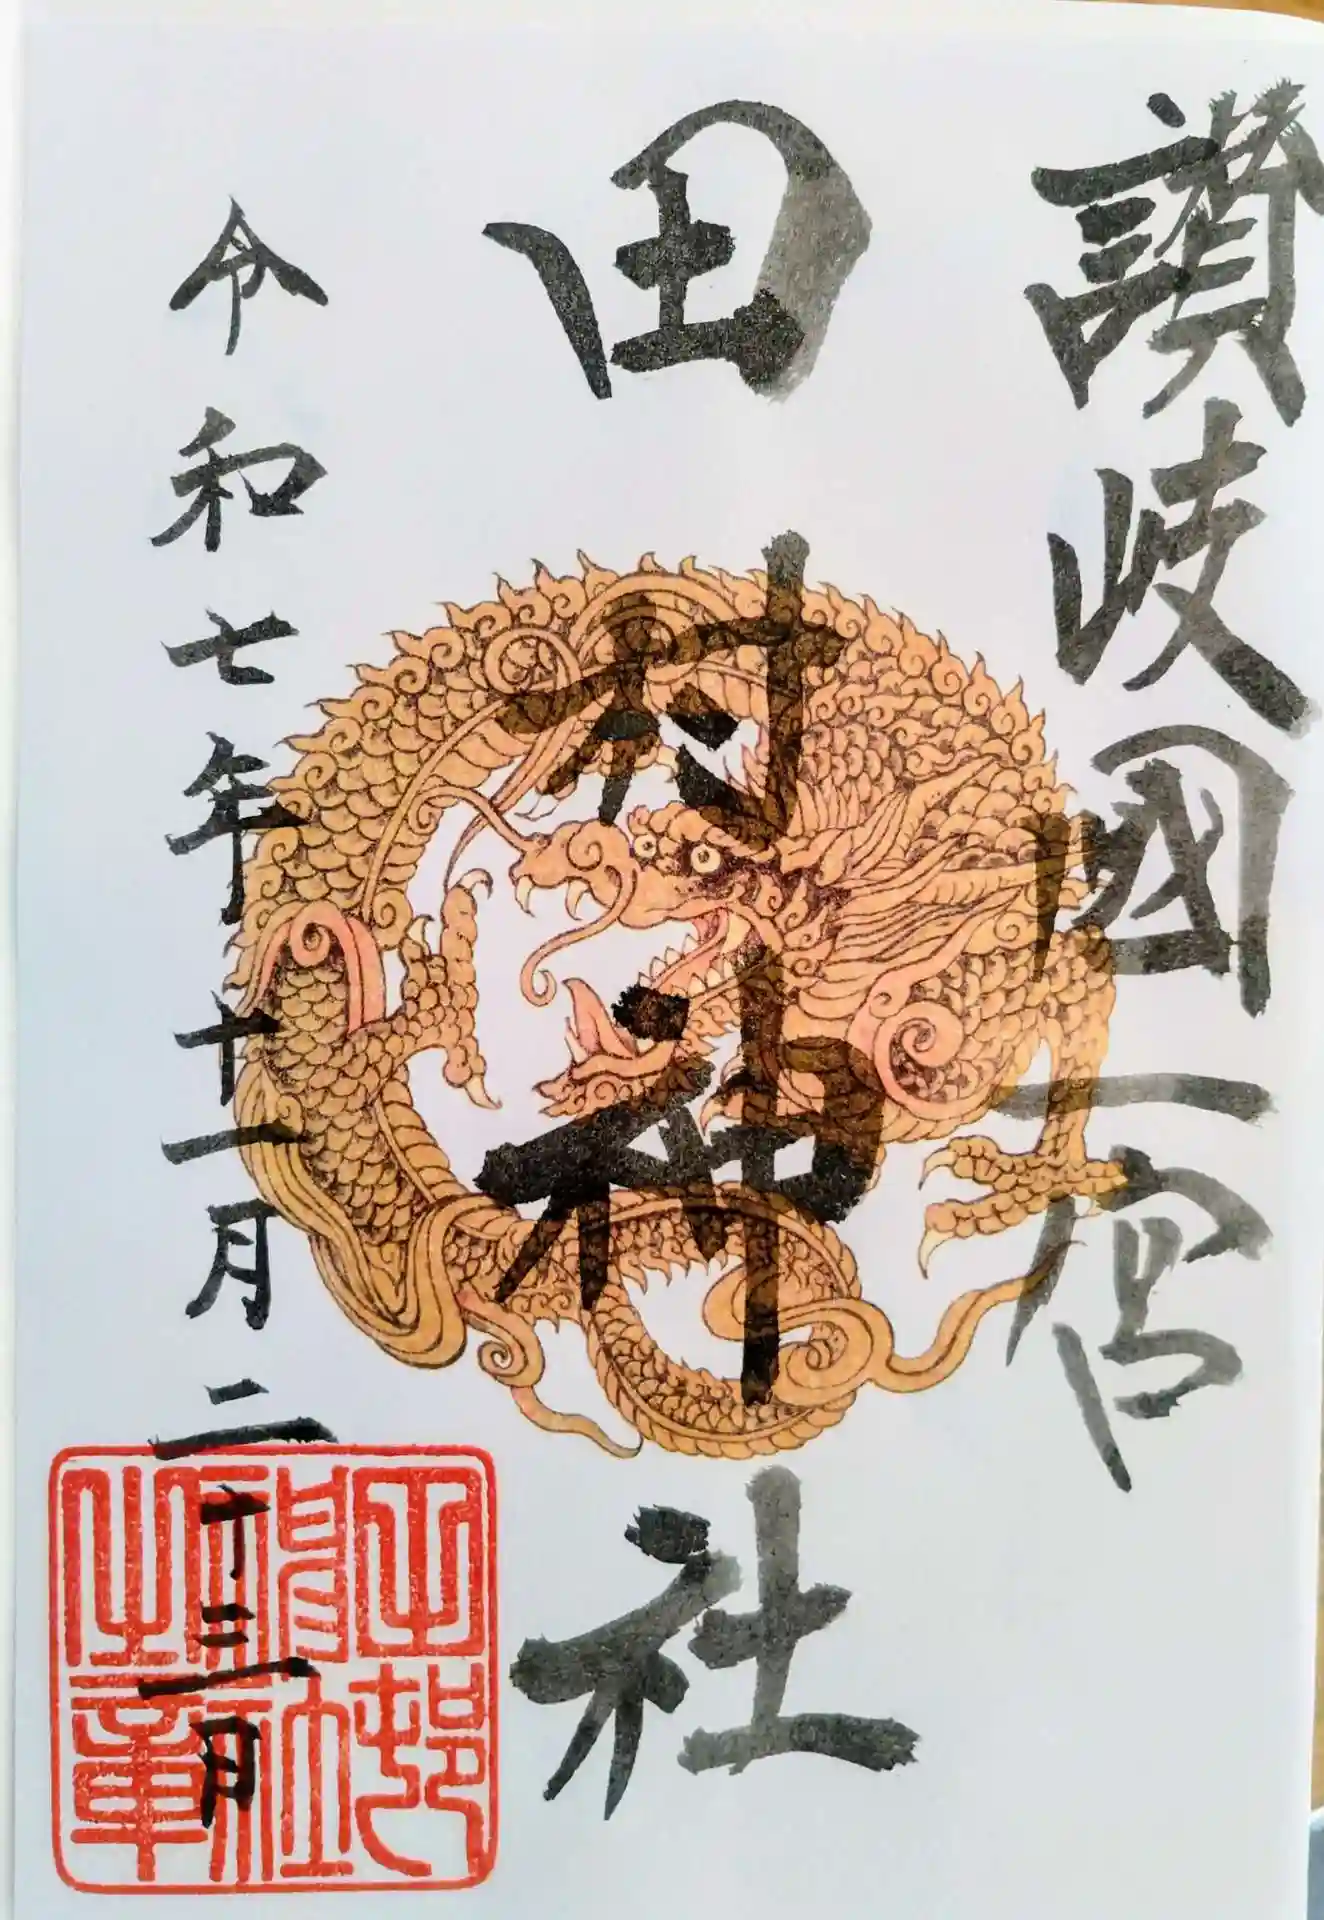 讃岐國一宮
田村神社
令和七年十一月二十三日
田村神社之章